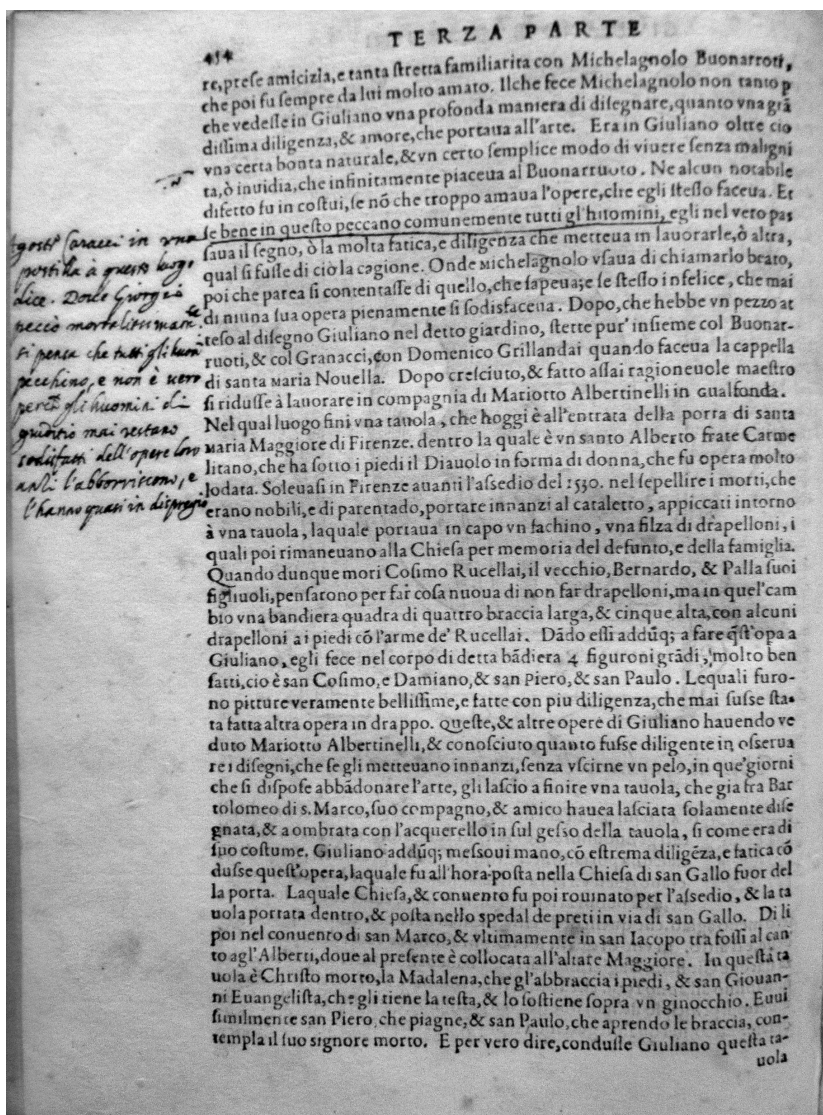 454
TERZA PARTE
re, prese amicizia, e tanta stretta familiarita con Michelagnolo Buonarroti,
che poi fu sempre da lui molto amato. Ilche fece Michelagnolo non tanto p
che vedesse in Giuliano vna profonda maniera di disegnare, quanto vna grã
dissima diligenza, & amore, che portaua all'arte. Era in Giuliano oltre cio
vna certa bonta naturale, & vn certo semplice modo di viuere senza maligni
ta, ò inuidia, che infinitamente piaceua al Buonarruoto. Ne alcun notabile
difetto fu in costui, se nõ che troppo amaua l'opere, che egli stesso faceua. Et
se bene in questo peccano comunemente tutti gl'huomini, egli nel vero pas
saua il segno, ò la molta fatica, e diligenza che metteua in lauorarle, ò altra,
qual si fusse di ciò la cagione. Onde Michelagnolo vsaua di chiamarlo beato,
poi che parea si contentasse di quello, che sapeua; e se stesso infelice, che mai
di niuna sua opera pienamente si sodisfaceua. Dopo, che hebbe vn pezzo at
teso al disegno Giuliano nel detto giardino, stette pur' insieme col Buonar-
ruoti, & col Granacci, con Domenico Grillandai quando faceua la cappella
di santa Maria Nouella. Dopo cresciuto, & fatto assai ragioneuole maestro
si ridusse à lauorare in compagnia di Mariotto Albertinelli in Gualfonda.
Nel qual luogo fini vna tauola, che hoggi è all'entrata della porta di santa
Maria Maggiore di Firenze. dentro la quale è vn santo Alberto frate Carme
litano, che ha sotto i piedi il Diauolo in forma di donna, che fu opera molto
lodata. Soleuasi in Firenze auanti l'assedio del 1530. nel sepellire i morti, che
erano nobili, e di parentado, portare innanzi al cataletto, appiccati intorno
à vna tauola, laquale portaua in capo vn fachino, vna filza di drapelloni, i
quali poi rimaneuano alla Chiesa per memoria del defunto, e della famiglia.
Quando dunque mori Cosimo Rucellai, il vecchio, Bernardo, & Palla suoi
figliuoli, pensarono per far cosa nuoua di non far drapelloni, ma in quel'cam
bio vna bandiera quadra di quattro braccia larga, & cinque alta, con alcuni
drapelloni a i piedi cõ l'arme de' Rucellai. Dãdo essi addũq; a fare q̃st'opa a
Giuliano, egli fece nel corpo di detta bãdiera 4 figuroni grãdi, molto ben
fatti, cio è san Cosimo, e Damiano, & san Piero, & san Paulo. Lequali furo-
no pitture veramente bellissime, e fatte con piu diligenza, che mai fusse sta-
ta fatta altra opera in drappo. Queste, & altre opere di Giuliano hauendo ve
duto Mariotto Albertinelli, & conosciuto quanto fusse diligente in osserua
re i disegni, che se gli metteuano innanzi, senza vscirne vn pelo, in que'giorni
che si dispose abbãdonare l'arte, gli lascio a finire vna tauola, che gia fra Bar
tolomeo di s. Marco, suo compagno, & amico hauea lasciata solamente dise
gnata, & aombrata con l'acquerello in sul gesso della tauola, si come era di
suo costume. Giuliano addũq; messoui mano, cõ estrema diligẽza, e fatica cõ
dusse quest'opera, laquale fu all'hora posta nella Chiesa di san Gallo fuor del
la porta. Laquale Chiesa, & conuento fu poi rouinato per l'assedio, & la ta
uola portata dentro, & posta nello spedal de preti in via di san Gallo. Di li
poi nel conuento di san Marco, & vltimamente in san Iacopo tra fossi al can
to agl'Alberti, doue al presente è collocata all'altare Maggiore. In questa ta
uola è Christo morto, la Madalena, che gl'abbraccia i piedi, & san Giouan-
ni Euangelista, che gli tiene la testa, & lo sostiene sopra vn ginocchio. Euui
similmente san Piero, che piagne, & san Paulo, che aprendo le braccia, con-
templa il suo signore morto. E per vero dire, condusse Giuliano questa ta-
uola
Agosto Caracci in vna
postilla à questo luogo
dice. Dolce Giorgio
peccò mortalissimamte
si pensa che tutti gli huoni
pecchino, e non è uero
perchè gli huomini di
giuditio mai restano
sodisfatti dell'opere loro
anzi l'abborriscono, e
l'hanno quasi in dispregio